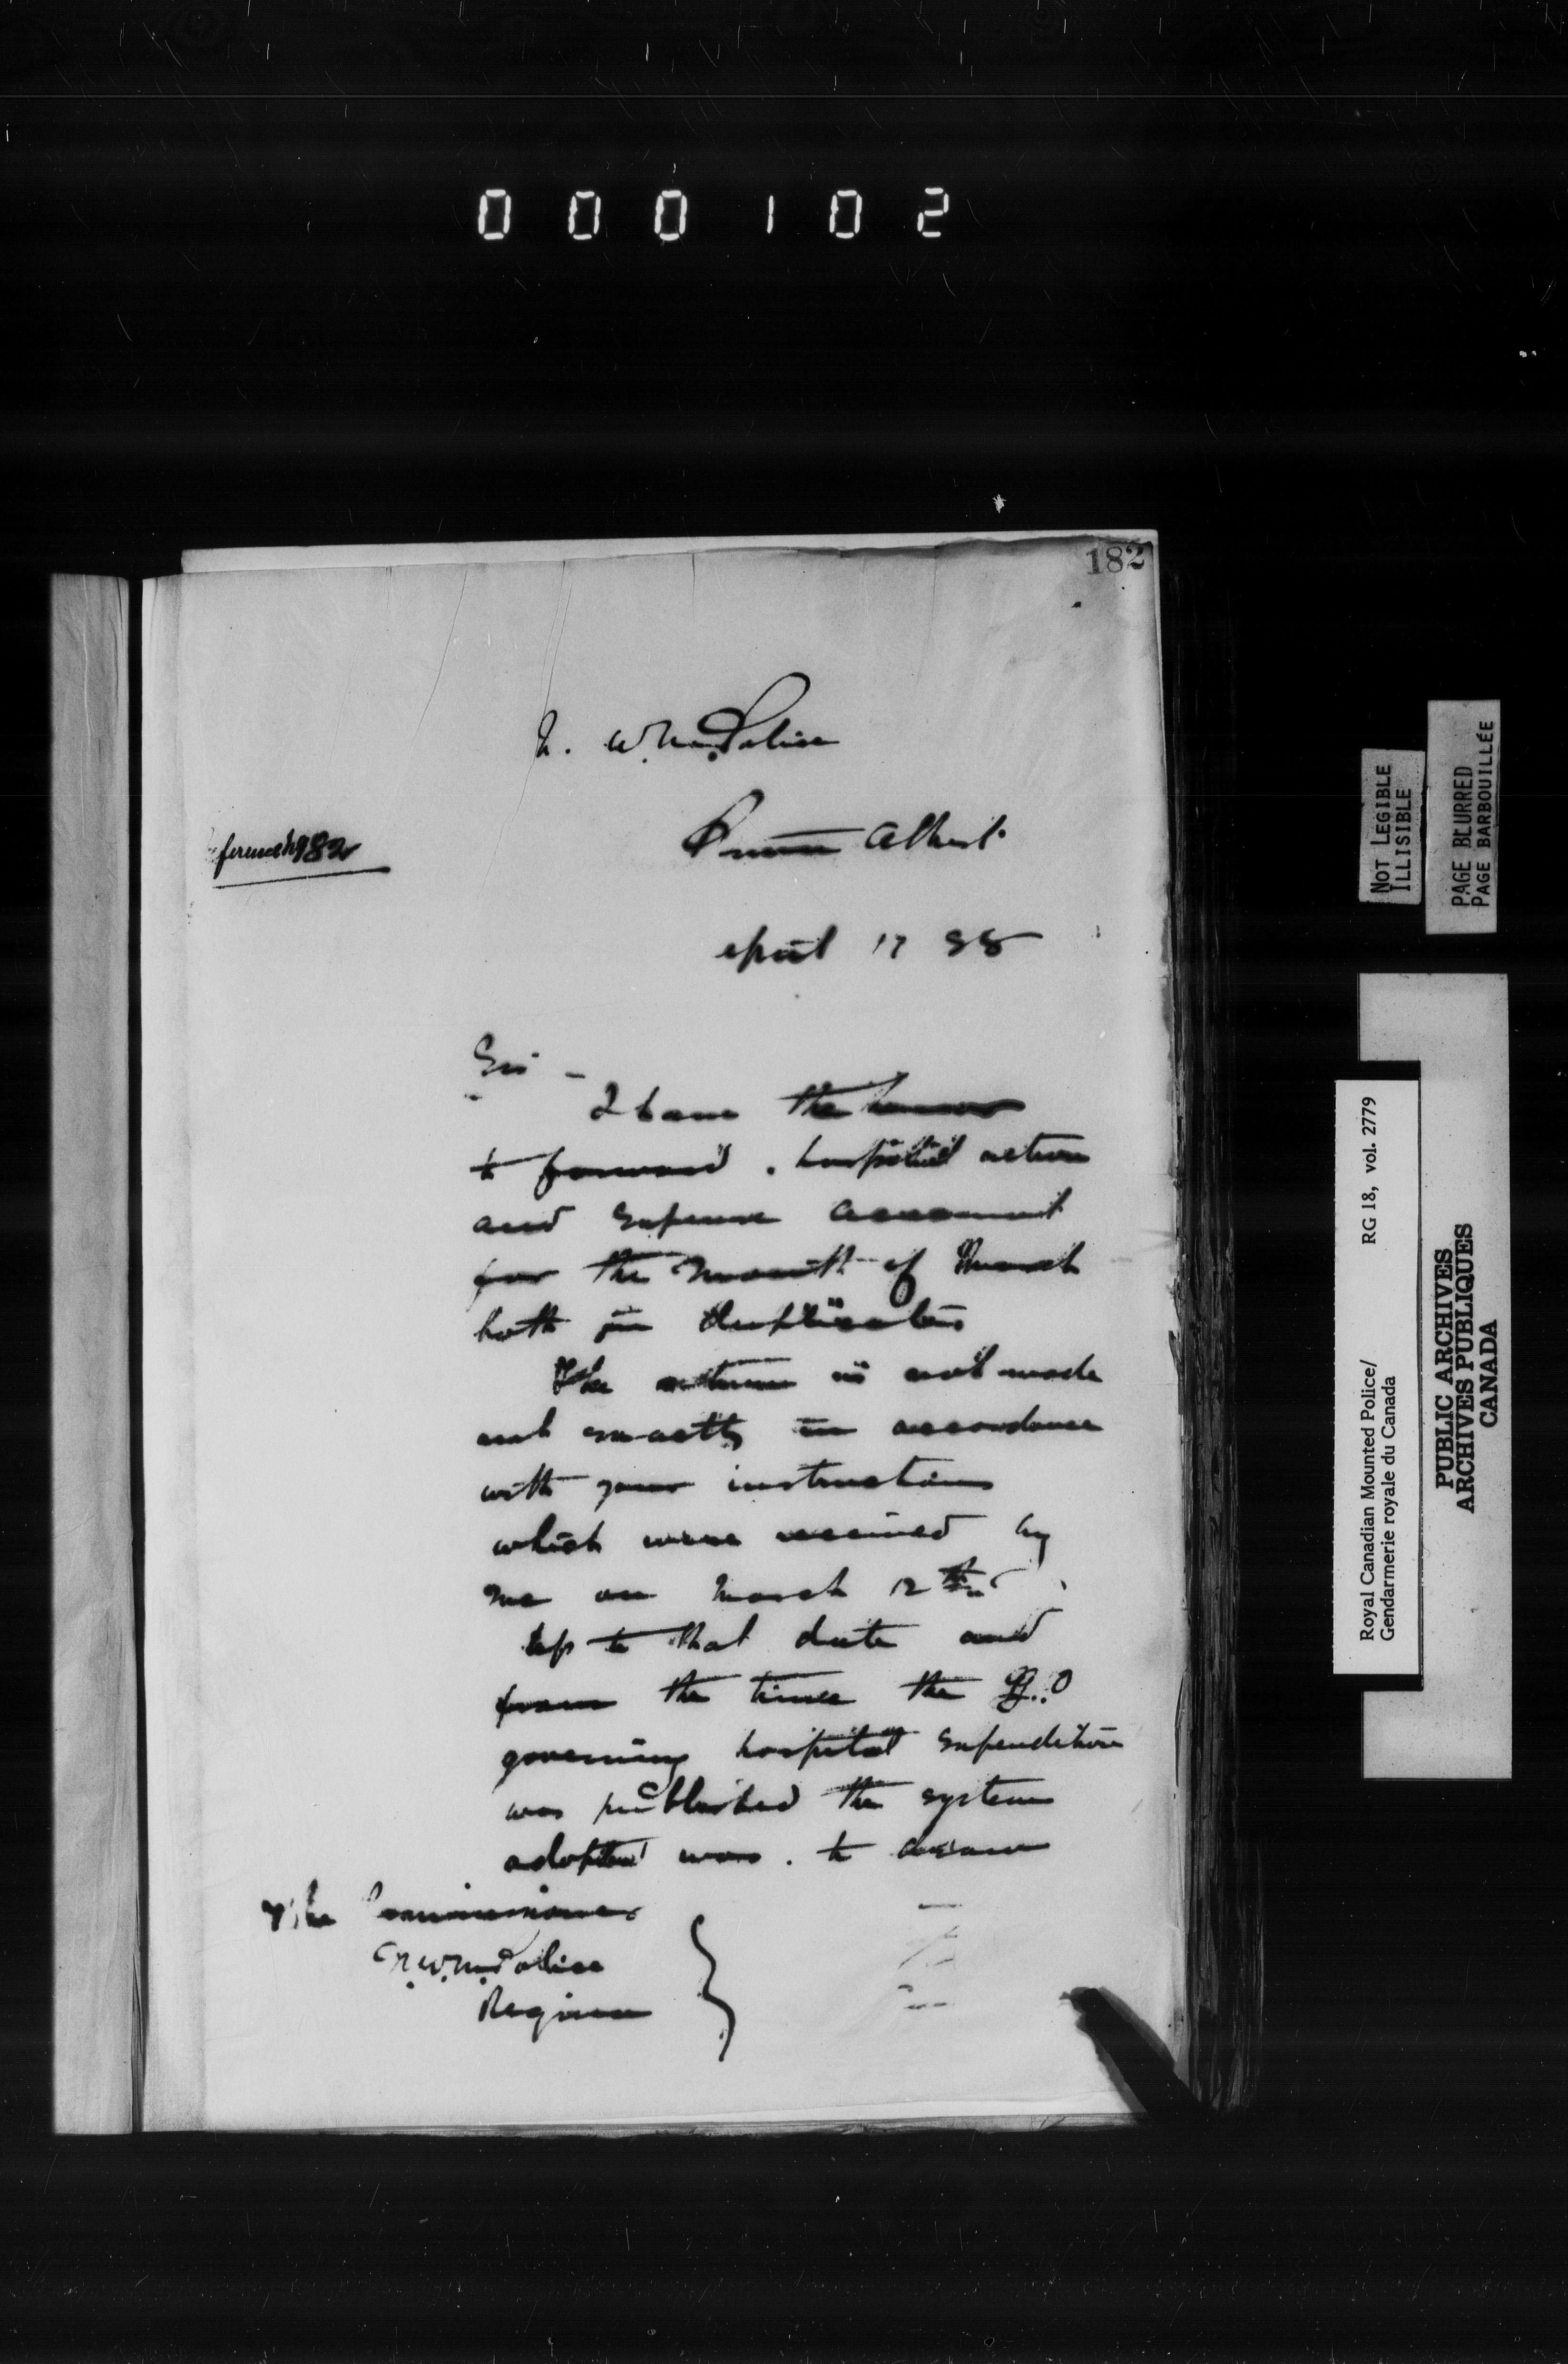 000102
182
N. W. M. Police
Prince Albert
April 17 88
Sir –
I have the honor
to forward . hospital return
and expense account
for the month of March
both in duplicate
The return is not made
out exactly in accordance
with your instructions
which were received by
me on March 12th
Up to that date and
from the time the G.O
governing hospital expenditure
was published the system
adopted was . to
The Commissioner
N.W.M. Police
Regina
NOT LEGIBLE
ILLISIBLE
PAGE BLURRED
PAGE BARBOUILLÉE
Royal Canadian Mounted Police/ RG 18, vol. 2779
Gendarmerie royale du Canada
PUBLIC ARCHIVES
ARCHIVES PUBLIQUES
CANADA